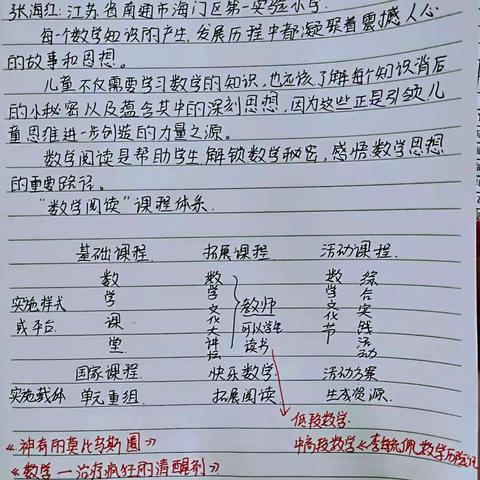 张海红:江苏省南通市海门区第一实验小学
每一个数学知识的产生、发展历程中都凝聚着震撼人心
的故事和思想。
儿童不仅需要学习数学的知识,也应该了解每个知识背后
的小秘密以及蕴含其中的深刻思想,因为这些正是引领儿
童思维进一步创造的力量之源。
数学阅读是帮助学生解锁数学秘密,感悟数学思想
的重要路径。
“数学阅读”课程体系.
基础课程. 拓展课程. 活动课程.
实施样式或平台.
数学课堂.
数学文化大讲坛
教师可以学生读书
数学文化节
综合实践活动
国家课程. 快乐数学 活动方案
实施载体 单元重组. 拓展阅读 生成资源.
低段数学.
《神奇的莫比乌斯圈》 中高段数学《李毓佩数学历险记
《数学—治疗疯狂的清醒剂》